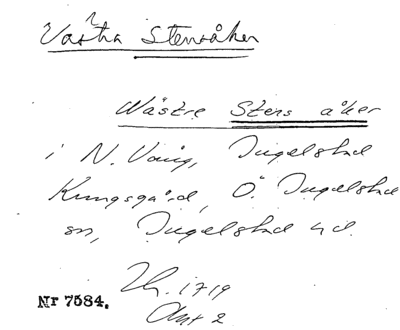 Västra Stensåker
Wästre Stens åker
i N. Vång, Ingelstad
Kungsgård, Ö. Ingelstad
sn, Ingelstad hd.
1719
Akt 2
Nr 7584.